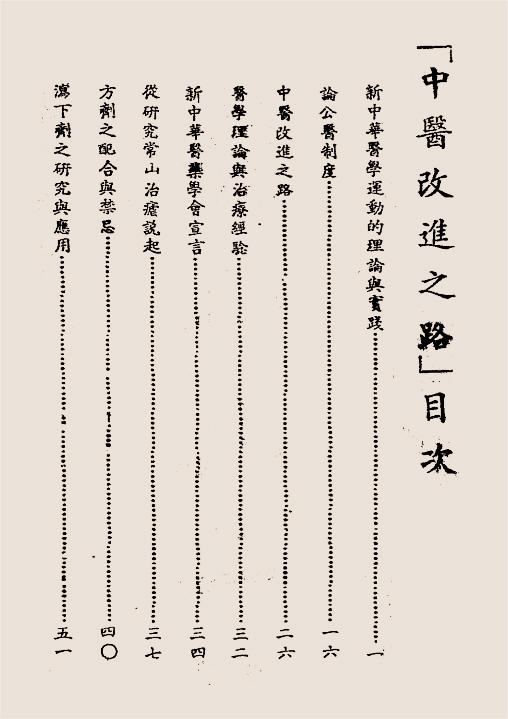 「中醫改進之路」目次
新中華醫學運動的理論與實踐……一
論公醫制度……一六
中醫改進之路……二六
醫學理論與治療經驗……三二
新中華醫藥學會宣言……三四
從研究常山治瘧說起……三七
方劑之配合與禁忌……四〇
瀉下劑之研究與應用……五一